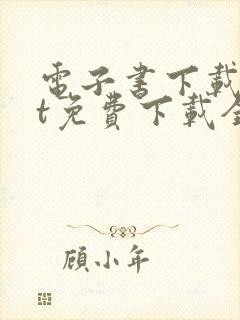 電子書下載
t免費下載全
顧小年